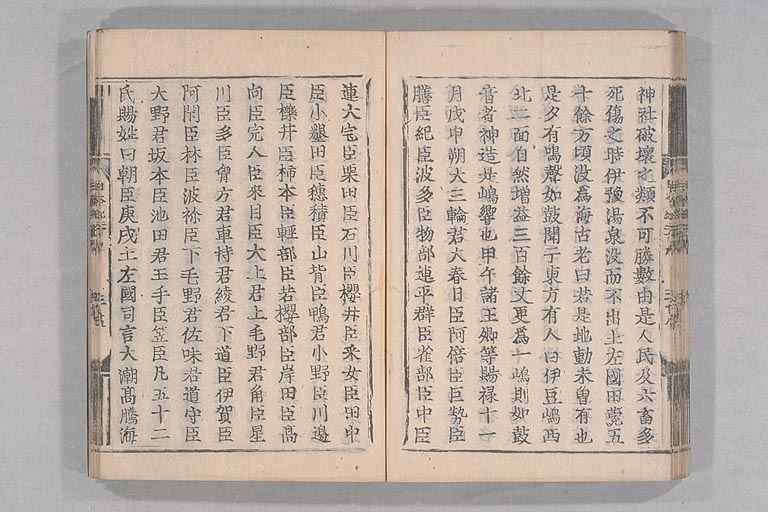 神社破壞之類不可勝數由是人民及六畜多
死傷之時伊豫湯泉没而不出土左國田菀五
十餘万頃没爲海古老曰若是地動未曽有也
是夕有鳴聲如鼓聞于東方有人曰伊豆嶋西
北二面自然增益三百餘丈更爲一嶋則如鼓
音者神造是嶋響也甲午諸王卿等賜禄十一
月戊申朔大三輪君大春日臣阿倍臣巨勢臣
膳臣紀臣波多臣物部連平群臣雀部臣中臣
連大宅臣栗田臣石川臣櫻井臣采女臣田中
臣小墾田臣穗積臣山背臣鴨君小野臣川邊
臣櫟井臣柿本臣輕部臣若櫻部臣岸田臣髙
向臣宍人臣來目臣犬上君上毛野君角臣星
川臣多臣胷方君車持君綾君下道臣伊賀臣
阿閇臣林臣波弥臣下毛野君佐味君道守臣
大野君坂本臣池田君玉手臣笠臣凡五十二
氏賜姓曰朝臣庚戌土左國司言大潮髙騰海